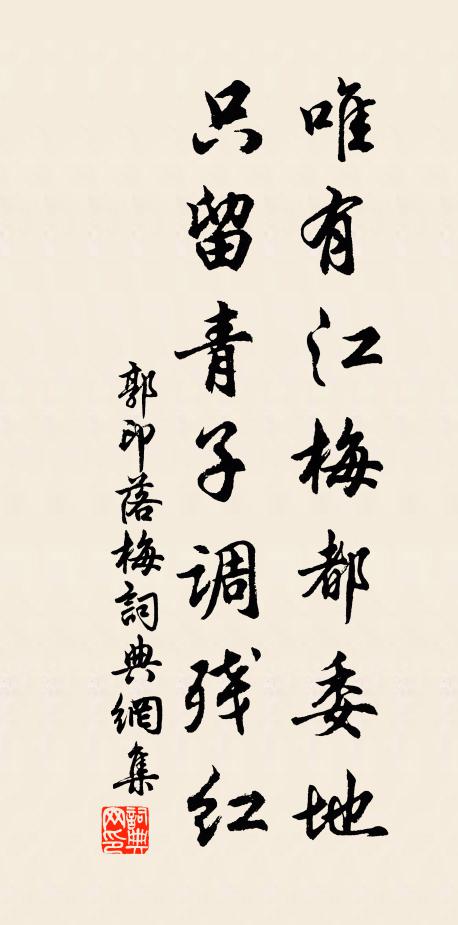 唯有江梅都委地
只留青子调残红
郭印落梅詞典網集
詞典网印